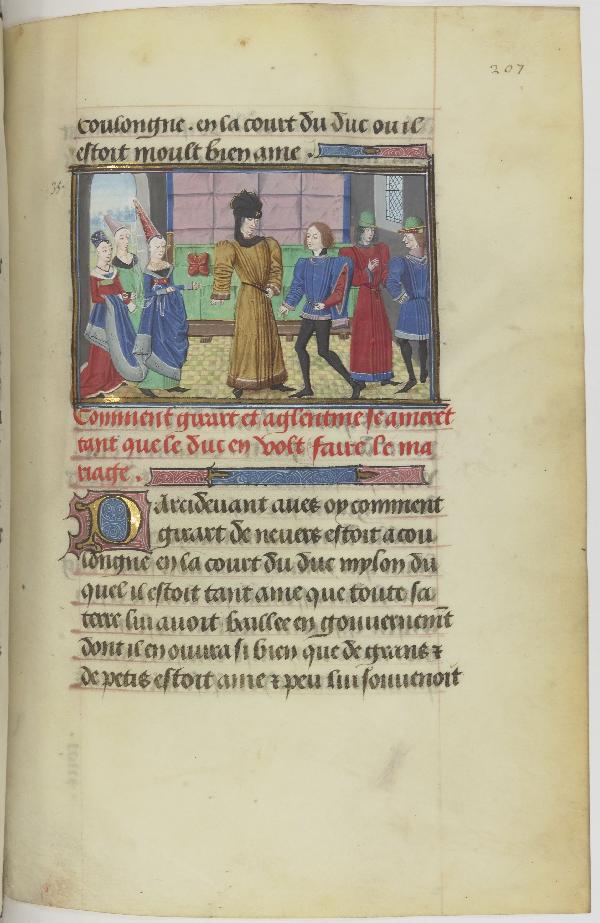 207
coulongne . en la court du duc ou il
estoit moult bien ame .
35.
Comment girart et aglentine se amerēt
tant que le duc en volt faire le ma
riaige .
Parcidevant aves oy comment
girart de nevers estoit a cou
longne en la court du duc mylon du
quel il estoit tant ame que toute sa
terre lui avoit baillee en gouvernemt̄
dont il en ouvra si bien que de grans ⁊
de petis estoit ame ⁊ peu lui souvenoit